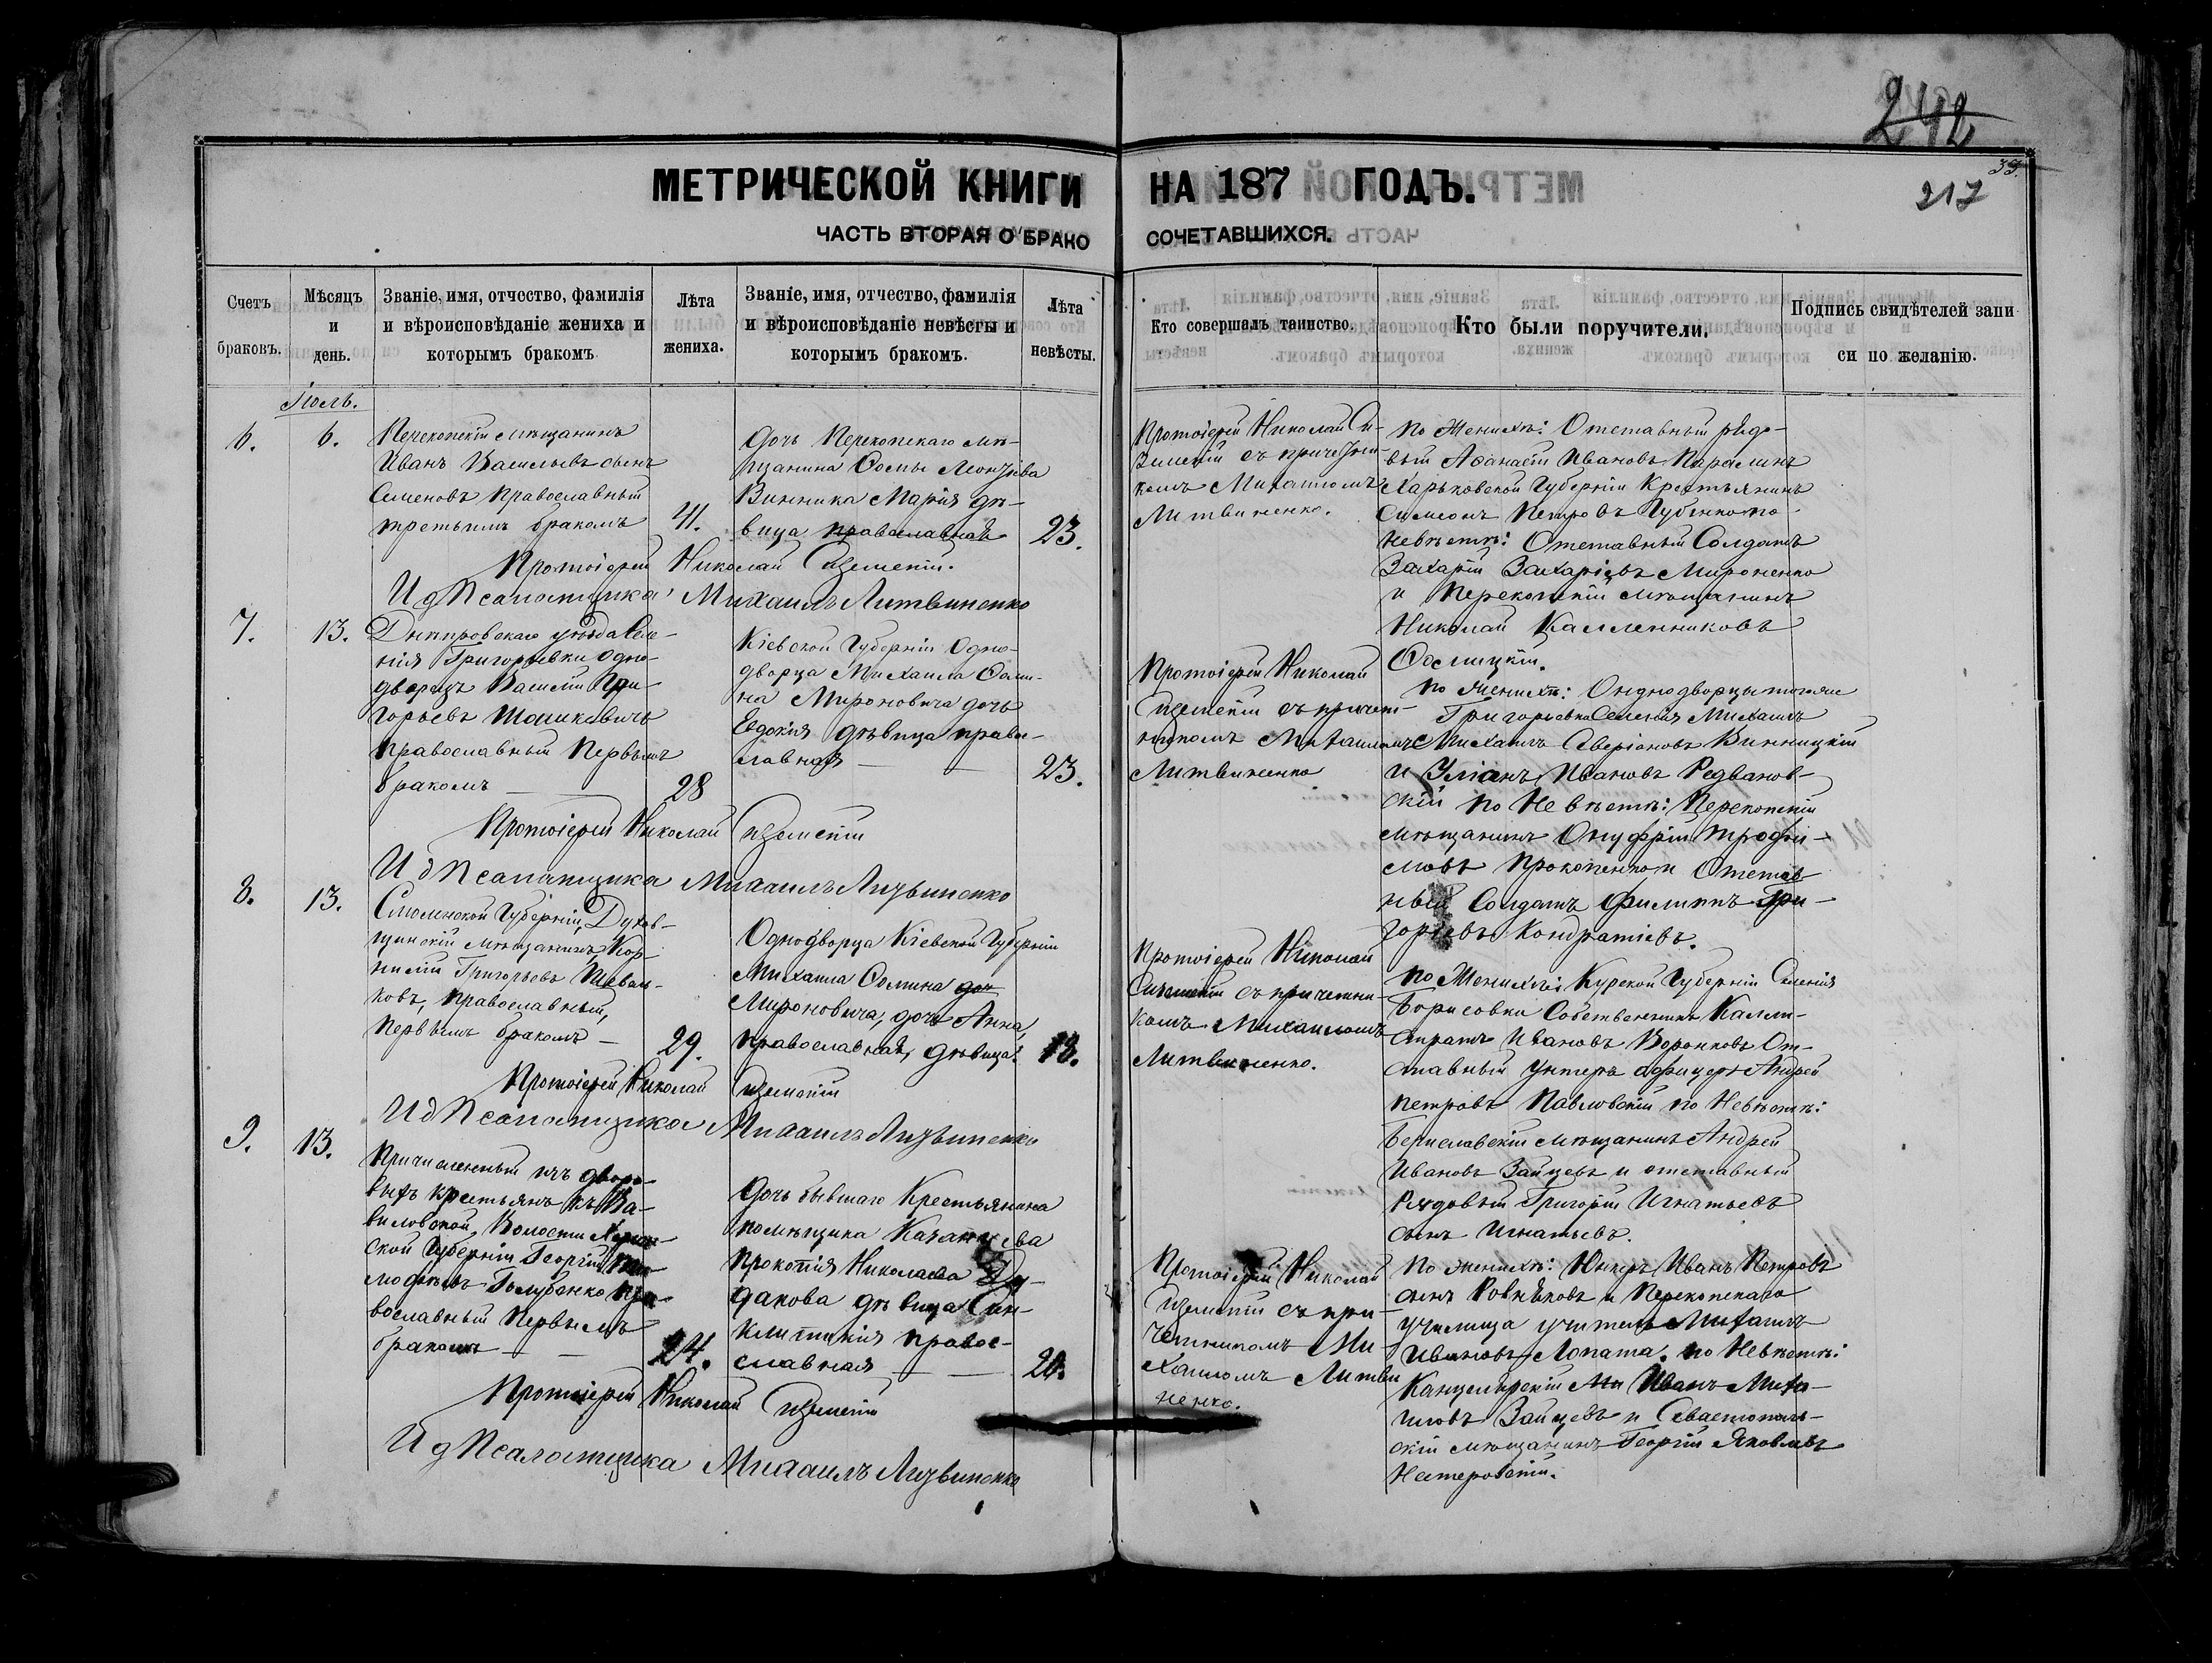 242
39.
217
МЕТРИЧЕСКОЙ КНИГИ НА 187 ГОДЪ.
ЧАСТЬ ВТОРАЯ О БРАКО СОЧЕТАВШИХСЯ.
Счетъ браковъ.
Мѣсяцъ и день.
Званіе, имя, отчество, фамилія и вѣроисповѣданіе жениха и которымъ бракомъ
Лѣта жениха.
Званіе, имя, отчество, фамилія и вѣроисповѣданіе невѣсты и которымъ бракомъ.
Лѣта невѣсты.
Кто совершалъ таинство.
Кто были поручители.
Подпись свидѣтелей запи си по желанію.
Іюль.
6.
6.
Перекопскій мѣщанинъ
Иванъ Васильевъ сынъ
Семеновъ православный
третьимъ бракомъ
41.
Дочь Перекопскаго мѣ-
щанина Ѳомы
Винника Марія дѣ-
вица православная
23.
Протоіерей Николай
съ причетни-
комъ Михаиломъ
Литвиненко.
По Женихѣ: Отставный рядо-
вый Аѳанасій Ивановъ
Харьковской Губерніи Крестьянинъ
Симеонъ Петровъ Губенко по
невѣстѣ: Отставный Солдатъ
Захарій Захаріевъ Мироненко
и Перекопскій мѣщанинъ
Николай Калленниковъ
Протоіерей Николай
И д Псаломщика Михаилъ Литвиненко
7.
13.
Днѣпровскаго уѣзда Селе-
нія Григорьевки одно-
дворецъ Василій Гри-
горьевъ Машкевичъ
православный Первымъ
бракомъ
28
Кіевской Губерніи Одно-
дворца Михаила Ѳоми-
на Мироновича дочь
Евдокія дѣвица право-
славная
23.
Протоіерей Николай
съ причет-
никомъ Михаиломъ
Литвиненко
По женихѣ: Однодворцы тогоже
Григорьевка Селенія Михаилъ
Аверіановъ Винницкій
и Уліанъ Ивановъ Редванов-
скій по Невѣстѣ: Перекопскій
мѣщанинъ Онуфрій Трофи-
мовъ Прокопенко и Отстав
ный Солдатъ Филиппъ Гри-
горьевъ Кондратіевъ.
Протоіерей Николай
И д Псаломщика Михаилъ Литвиненко
8.
13.
Смоленской Губерніи, Духов-
щинскій мѣщанинъ Кор-
нилій Григорьевъ
ковъ, православный,
первымъ бракомъ
29.
Однодворца Кіевской Губерніи
Михаила Ѳомина доч
Мироновича, дочь Анна,
православная, дѣвица.
18.
Протоіерей Николай
съ причетни-
комъ Михаиломъ
Литвиненко.
По Женихѣ: Курской Губерніи Селенія
Борисовки Собственникъ Калли-
стратъ Ивановъ Воронковъ От-
ставный унтеръ офицеръ Андрей
Петровъ Павловскій по Невѣстѣ:
Бериславскій мѣщанинъ Андрей
Ивановъ Зайцевъ и отставный
Рядовый Григорій Игнатьевъ
сынъ Игнатьевъ.
Протоіерей Николай
И д Псаломщика Михаилъ Литвиненко
9.
13.
Причисленный изъ дворо-
выхъ крестьянъ къ Ва-
виловской Волости Херсон-
ской Губерніи Георгій Ти-
моѳеевъ Голубенко пра-
вославный Первымъ
бракомъ
24.
Дочь бывшаго Крестьянина
помѣщика
Прокопія Николаева Ду-
дакова дѣвица Син-
клитикія право-
славная
20.
Протоіерей Николай
съ при-
четникомъ Ми-
хаиломъ Литви
ненко.
По женихѣ: Юнкеръ Иванъ Петровъ
сынъ и Перекопскаго
училища учитель Михаилъ
Ивановъ Лопата. по Невѣстѣ:
Канцелярскій Ми Иванъ Миха-
иловъ Зайцевъ и Севастополь-
скій мѣщанинъ Георгій Яковлевъ
Нестеровскій.
Протоіерей Николай
И д Псаломщика Михаилъ Литвиненко